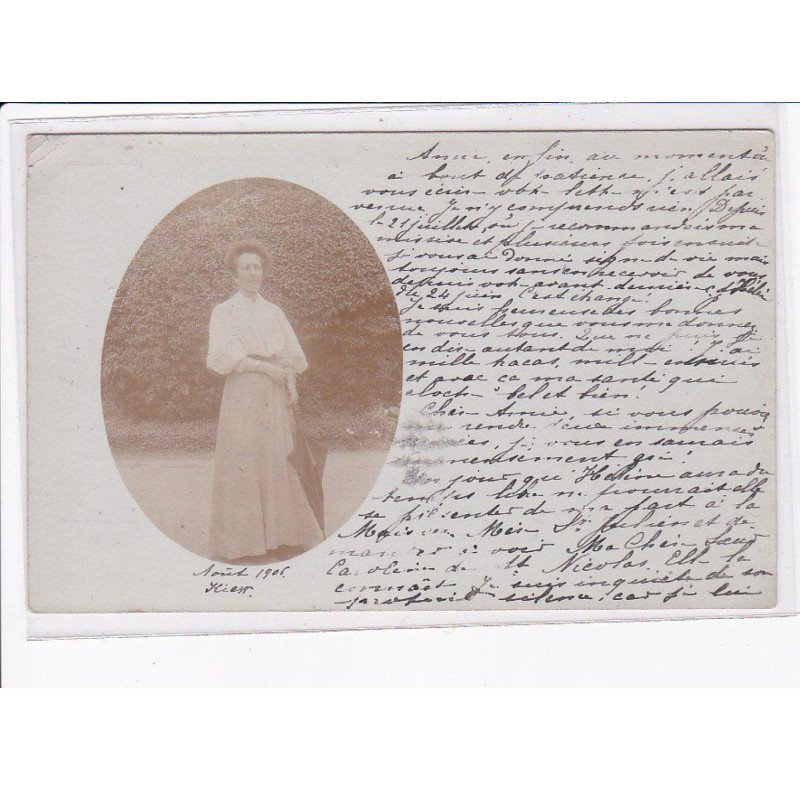 Amie, enfin, au moment où
à bout de patience, j'allais
vous écrire votre lettre m'est par
venue. Je n'y comprends rien! Depuis
le 21 juillet, où je recommandais ma
missive et plusieurs fois ensuite
je vous ai donné signe de vie mais
toujours sans en recevoir de vous
depuis votre avant dernière d'Hélène
du 24 juin. C'est étrange!
Je suis heureuse des bonnes
nouvelles que vous me donnez
de vous tous. Que ne puis je
en dire autant de moi! J'ai
mille tracas, mille ennuis
et avec ça ma santé qui
cloche bel et bien!
Chère Amie, si vous pouviez
me rendre d'une immense
vous en saurais
gré!
jour que Hélène aura du
temps libre ne pourrait elle
se présenter de ma part à la
Maison Mère St Julien et de
mander à voir Ma Chère Sœur
Caroline de St Nicolas. Elle la
connaît. Je suis inquiète de son
silence, car je lui
Août 1906.
Kieff.